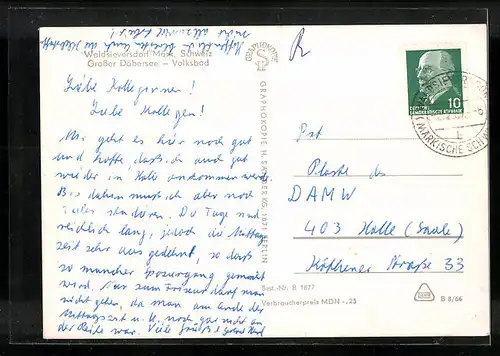 Waldsieversdorf Märk. Schweiz
Großer Däbersee — Volksbad
Liebe Kolleginnen!
Liebe Kollegen!
Mir geht es hier noch gut
und hoffe, daß ich auch gut
wieder in Halle ankommen werde.
Bis dahin muß ich aber noch
Die Tage sind
reichlich lang, jedoch die Mittags-
zeit sehr ausgedehnt, so daß
so mancher Spaziergang gemacht
wird. Nur zum Friseur darf man
nicht gehen, da man am Ende der
Mittagszeit u. U. noch gar nicht an
der Reihe war. Viele Grüße!
GRAPHOKOPIE
GRAPHOKOPIE H. SANDER KG, 1071 BERLIN
Best.-Nr. B 1877
Verbraucherpreis MDN -,25
R
10
DEUTSCHE
DEMOKRATISCHE REPUBLIK
(MÄRKISCHE SCHW
b
DAMW
403 Halle (Saale)
Köthener Straße 33
B 8/66